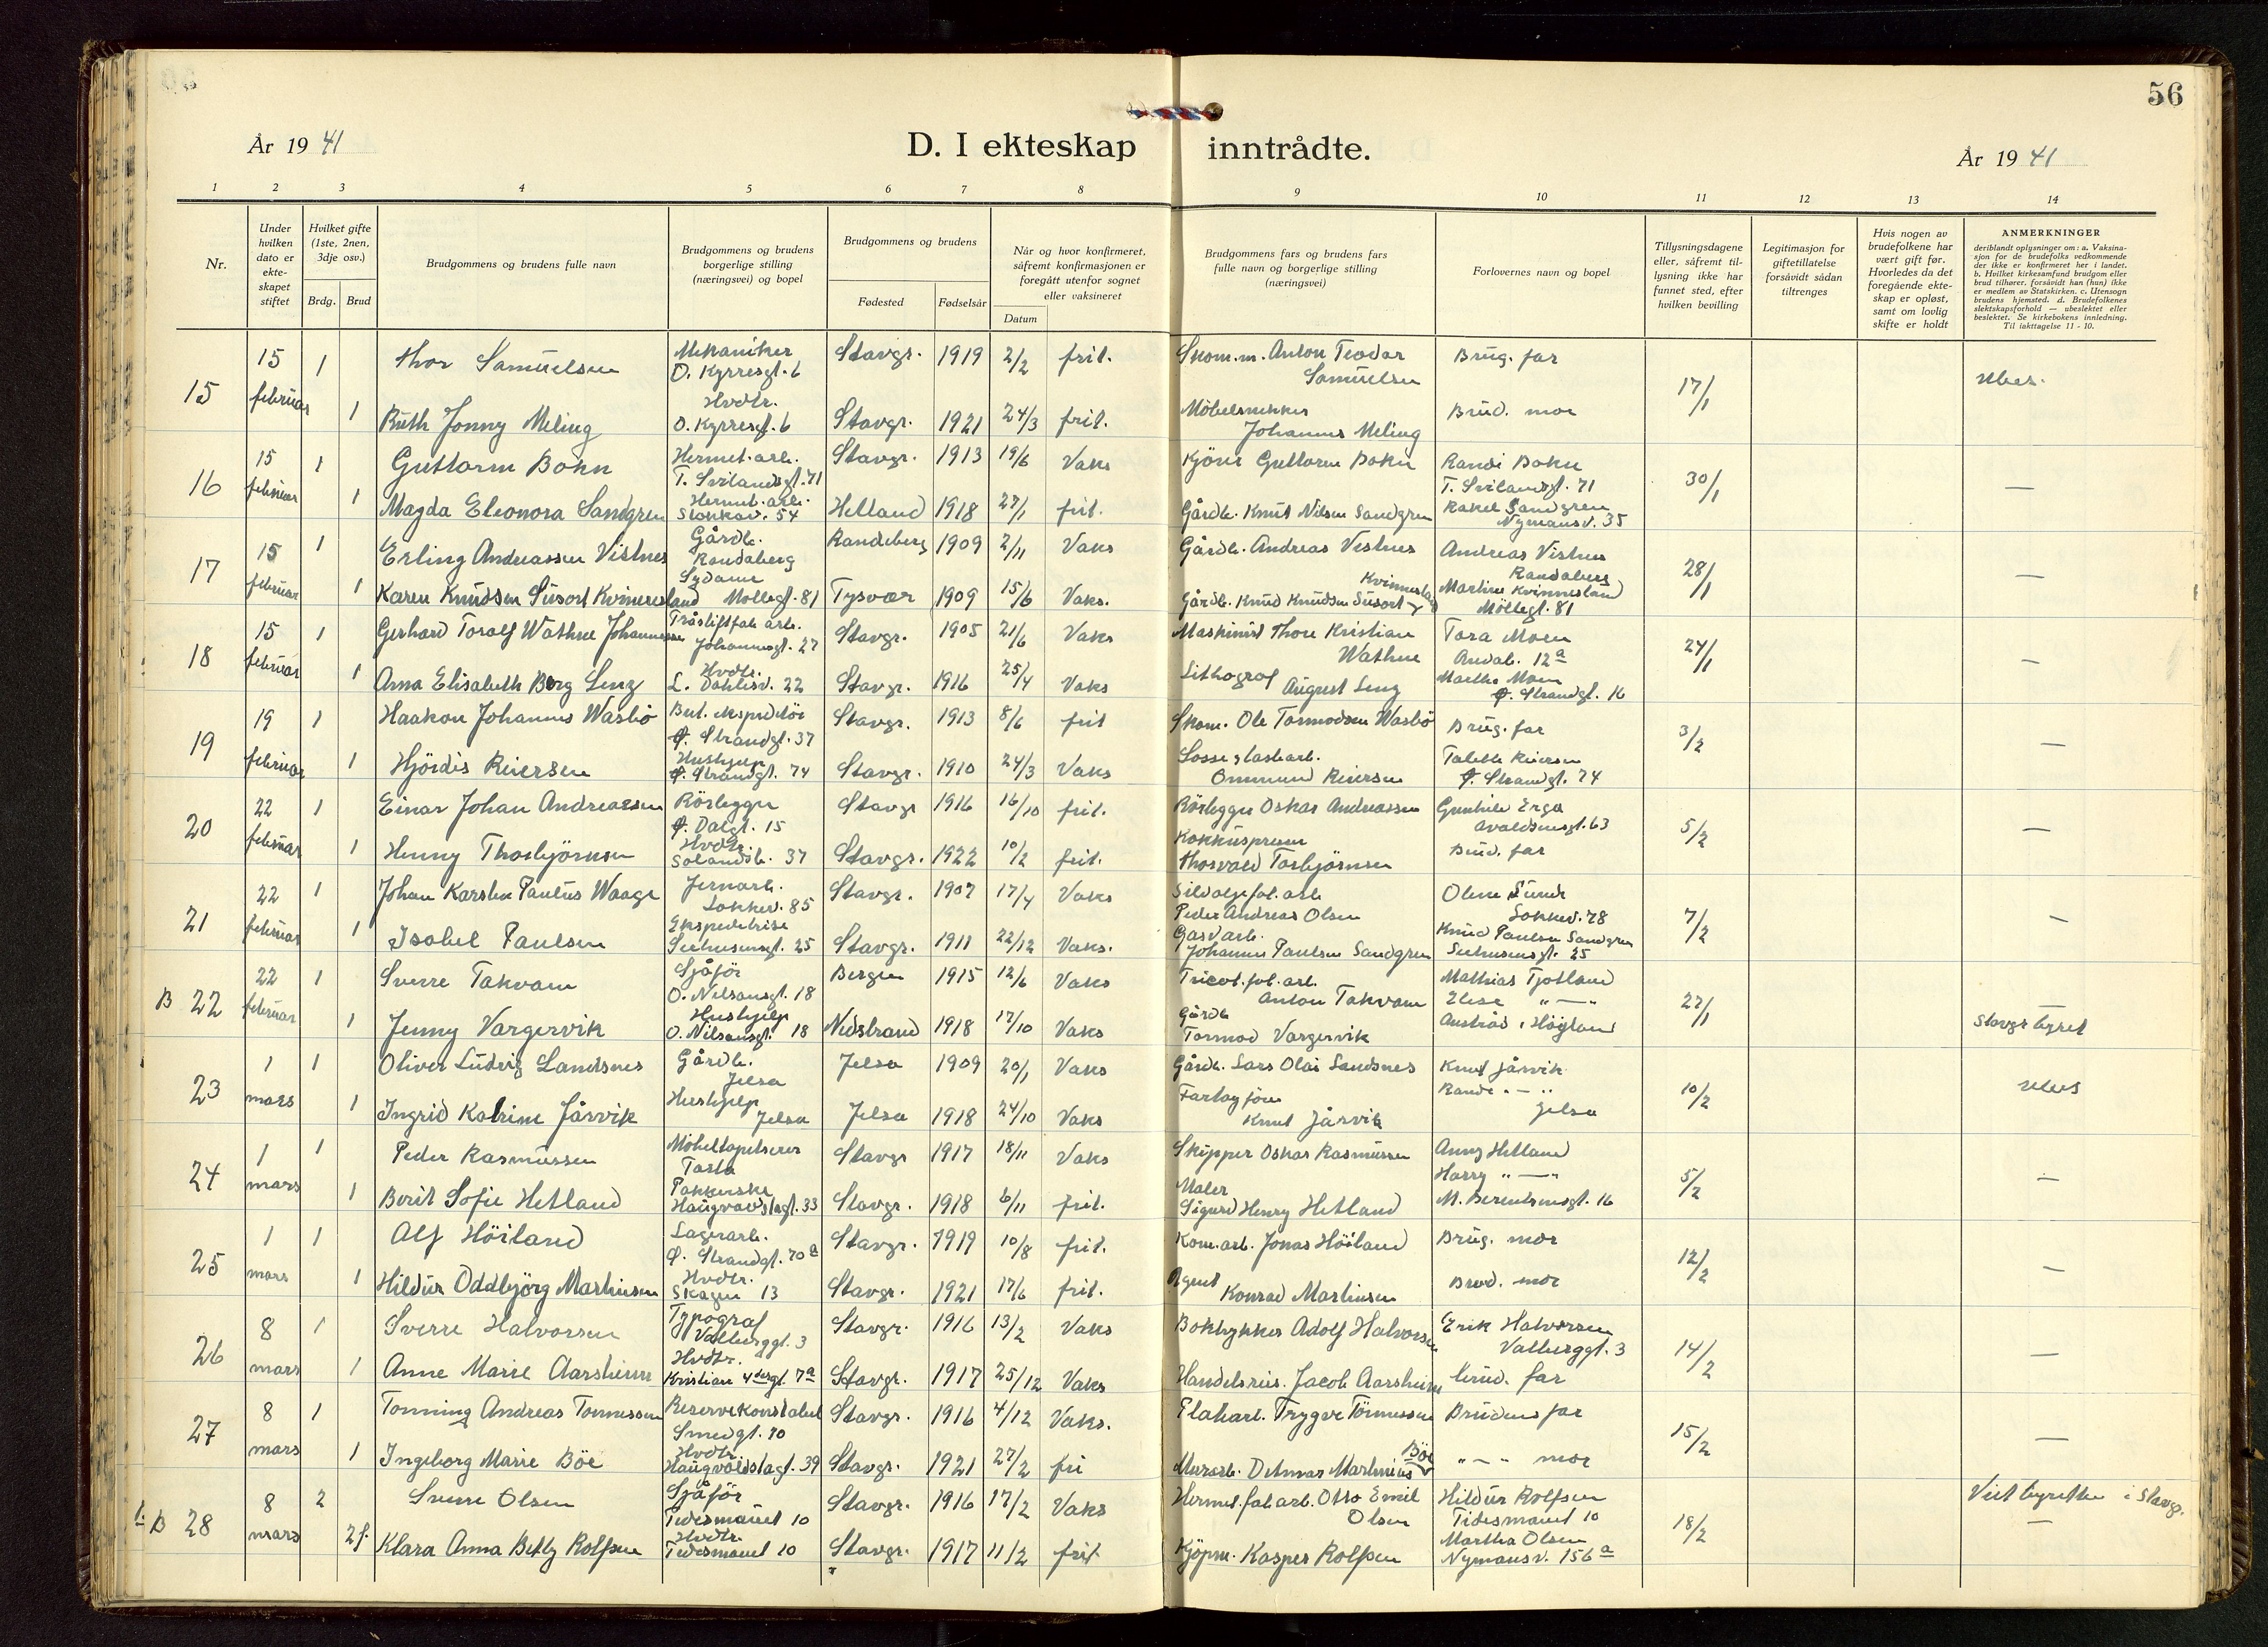 56
År 19 41
D. I ekteskap inntrådte.
År 19 41
1 2 3 4 5 6 7 8 9 10 11 12 13 14
Nr.
Under hvilken dato er ekte-skapet stiftet
Hvilket gifte (1ste, 2nen, 3dje osv.)
Brdg. Brud
Brudgommens og brudens fulle navn
Brudgommens og brudens borgerlige stilling (næringsvei) og bopel
Brudgommens og brudens
Fødested Fødselsår
Når og hvor konfirmeret, såfremt konfirmasjonen er foregått utenfor sognet eller vaksineret
Datum
Brudgommens fars og brudens fars fulle navn og borgerlige stilling (næringsvei)
Forlovernes navn og bopel
Tillysningsdagene eller, såfremt til-lysning ikke har funnet sted, efter hvilken bevilling
Legitimasjon for giftetillatelse forsåvidt sådan tiltrenges
Hvis nogen av brudefolkene har vært gift før. Hvorledes da det foregående ekte-skap er opløst, samt om lovlig skifte er holdt
ANMERKNINGER
deriblandt oplysninger om: a. Vaksina-sjon for de brudefolks vedkommende der ikke er konfirmeret her i landet. b. Hvilket kirkesamfund brudgom eller brud tilhører, forsåvidt han (hun) ikke er medlem av Statskirken. c. Utensogn brudens hjemsted. d. Brudefolkenes slektskapsforhold — ubeslektet eller beslektet. Se kirkebokens innledning. Til iakttagelse 11 - 10.
15 15 februar 1 Thor Samuelsen Mekaniker O. Kyrresgt. 6 Stavgr. 1919 2/2 frit. Skom.m. Anton Teodor Samuelsen Brug. far 17/1 Ubes.
1 Ruth Jonny Meling Hvdtr. O. Kyrresgt. 6 Stavgr. 1921 24/3 frit. Johannes Meling Brud. mor
16 15 februar 1 Guttorm Bokn Hermet.arb. T. Svilandsgt. 71 Stavgr. 1913 19/6 Vaks Kjörer Guttorm Bokn Randi Bokn T. Svilandsgt. 71 30/1 —
1 Magda Eleonora Sandgren Hermet.arb. Stokkav. 54 Hetland 1918 27/1 frit. Gårdb. Knut Nilsen Sandgren Rakel Sandgren Nymansv. 35
17 15 februar 1 Erling Andreassen Vistnes Gårdb. Randaberg Randeberg 1909 2/11 Vaks Gårdb. Andreas Vistnes Andreas Vistnes Randaberg 28/1 —
1 Karen Knudsen Susort Kvinnesland Sydame Møllegt. 81 Tysvær 1909 15/6 Vaks. Gårdb. Knud Knudsen Susort Kvinnesland Martine Kvinnesland Möllegt. 81
18 15 februar 1 Gerhard Toralf Wathne Johannessen Johannesgt. 27 Stavgr. 1905 21/6 Vaks Maskinist Thore Kristian Wathne Tora Moen Andab. 12a 24/1 —
1 Anna Elisabeth Berg Lenz Hvdtr. L. Dahlesv. 22 Stavgr. 1916 25/4 Vaks Lithograf August Lenz Martha Moen Ø. Strandgt. 16
19 19 februar 1 Haakon Johannes Wasbö But. ekspeditör Ø. Strandgt. 37 Stavgr. 1913 8/6 frit Skom. Ole Tormodsen Wasbö Brug. far 3/2 —
1 Hjördis Reiersen Hushjelp Ø. Strandgt. 74 Stavgr. 1910 24/3 Vaks Ommund Reiersen Reiersen Ø. Strandgt. 74
20 22 februar 1 Einar Johan Andreassen Rörlegger Ø. Dalgt. 15 Stavgr 1916 16/10 frit. Rörlegger Oskar Andreassen Gunhild Erga Avaldsnesgt. 63 5/2 —
1 Henny Thorbjörnsen Hvdtr. Solandsb. 37 Stavgr. 1922 10/2 frit. Thorvald Torbjørnsen Brud. far
21 22 februar 1 Johan Karsten Paulus Waage Jernarb. Lokkev. 85 Stavgr. 1907 17/4 Vaks Sildoljefab.arb Peder Andreas Olsen Olene Lunde Lokkev. 78 7/2 —
1 Isabel Paulsen Ekspeditrise Seehusensgt. 25 Stavgr. 1911 22/12 Vaks. Gasv.arb. Johannes Paulsen Sandgren Knud Paulsen Sandgren Seehusensgt. 25
B 22 22 februar 1 Sverre Takvam Sjåför O. Nilsensgt. 18 Bergen 1915 12/6 Vaks Tricot.fab.arb. Anton Takvam Mathias Tjotland 27/1 —
1 Jenny Vargervik Hushjelp O. Nilsensgt. 18 Nedstrand 1918 17/10 Vaks Gårdb Tormod Vargervik Elese " — " Austråd i Høyland Stavgr byret
23 1 mars 1 Oliver Ludvig Landsnes Gårdb. Jelsa Jelsa 1909 20/1 Vaks Gårdb. Lars Olai Landsnes Knut Jårvik 10/2 Ubes
1 Ingrid Katrine Jårvik Hushjelp Jelsa Jelsa 1918 24/10 Vaks Knut Jårvik " — " Jelsa
24 1 mars 1 Peder Rasmussen Möbeltapetserer Tasta Stavgr 1917 18/11 Vaks Skipper Oskar Rasmussen Anny Hetland 5/2 —
1 Berit Sofie Hetland Pakkerske Haugvaldstadgt. 33 Stavgr. 1918 6/11 frit. Maler Sigurd Henry Hetland Harry " — " M. Berentsensgt. 16
25 1 mars 1 Alf Höiland Lagerarb. Ø. Strandgt. 70a Stavgr. 1919 10/8 frit. Kom.arb. Jonas Höiland Brug. mor 12/2 —
1 Hildur Oddbjörg Martinsen Hvdtr. Skagen 13 Stavgr. 1921 17/6 frit. Agent Konrad Martinsen Brud. mor
26 8 mars 1 Sverre Halvorsen Typograf Valberggt. 3 Stavgr. 1916 13/2 Vaks Boktrykker Adolf Halvorsen Erik Halvorsen Valberggt. 3 14/2 —
1 Anne Marie Aarsheim Hvdtr. Kristian 4desgt. 7a Stavgr. 1917 25/12 Vaks Handelsreis. Jacob Aarsheim brud. far
27 8 mars 1 Tonning Andreas Tönnessen Reservekonstabel Smedgt. 70 Stavgr. 1916 4/12 Vaks. Trygve Tönnessen Brudens far 15/2 —
1 Ingeborg Marie Böe Hvdtr. Haugvaldstadgt. 39 Stavgr. 1921 27/2 fri Murarb. Ditmar Martinius Böe " — " mor
B 28 8 mars 2 Sverre Olsen Sjåför Tidesmauet 10 Stavgr. 1916 17/2 Vaks Hermet.fab.arb. Otto Emil Olsen Hildur Rolfsen Tidesmauet 10 18/2 Viet byretten i Stavgr. —
2f. Klara Anna Betty Rolfsen Hvdtr. Tidesmauet 10 Stavgr. 1917 11/2 frit Kjöpm. Kasper Rolfsen Martha Olsen Nymansv. 156a